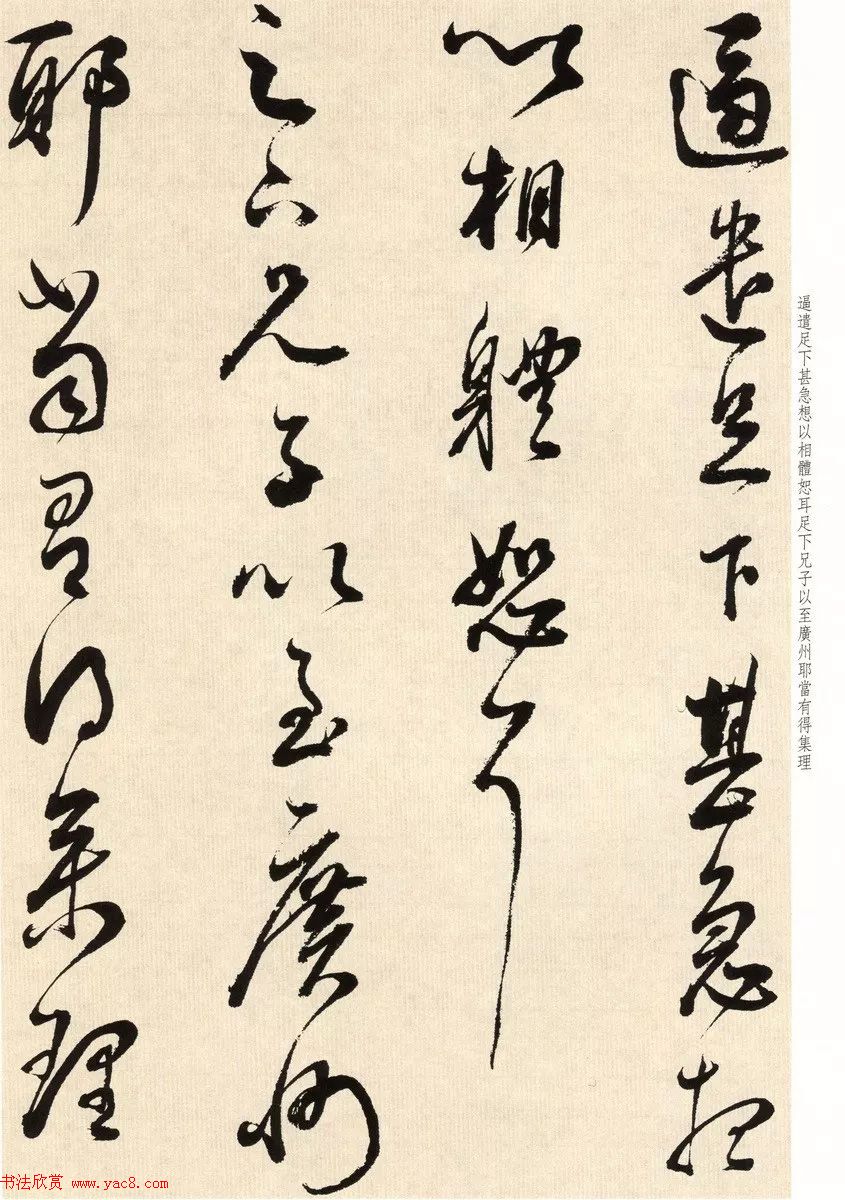 逼遣足下甚急想
以相體恕耳
足下兄子以至廣州
耶當有得集理
逼遣足下甚急想以相體恕耳足下兄子以至廣州耶當有得集理
书法欣赏 www.yac8.com